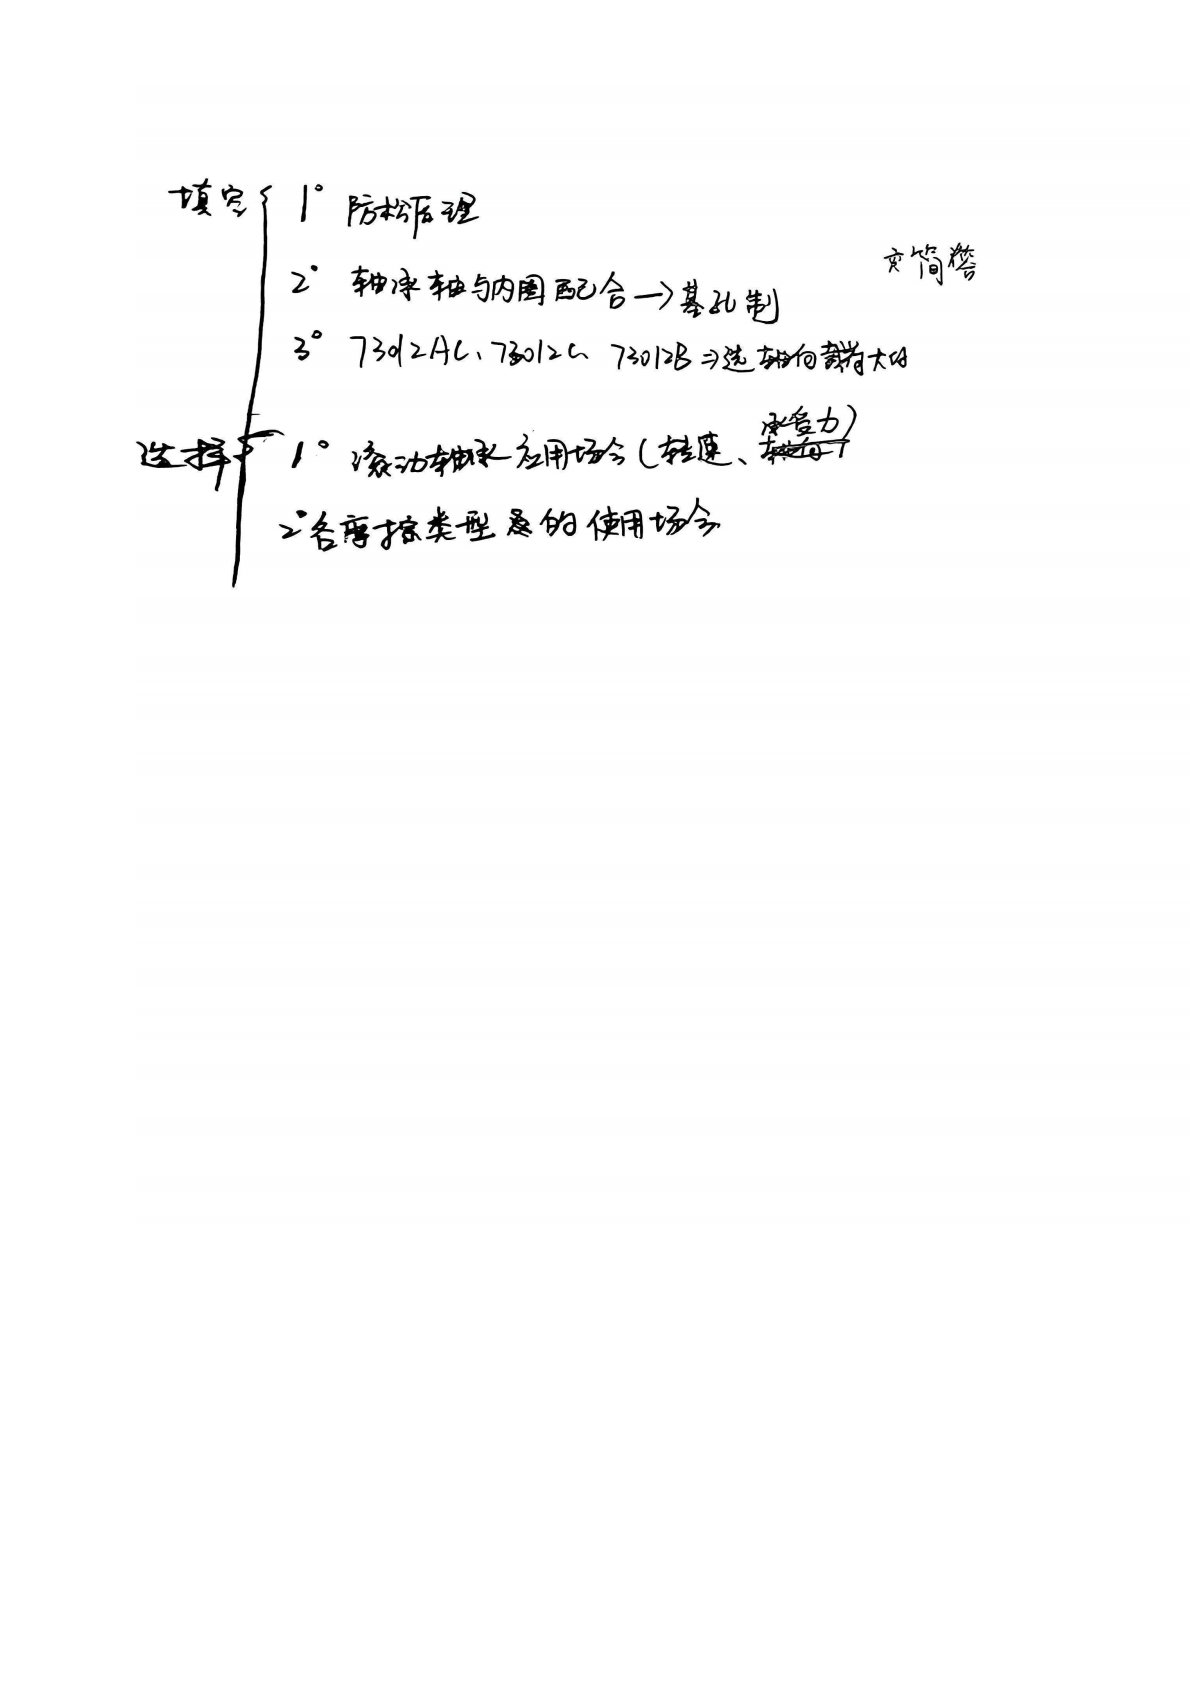 填空 1° 防松原理
2° 轴承轴与内圈配合→基孔制
简答
3° 73012AC、73012C、73012B⇒选轴向载荷大的
选择 1° 滚动轴承应用场合(转速、承受力)
2° 各摩擦类型的使用场合